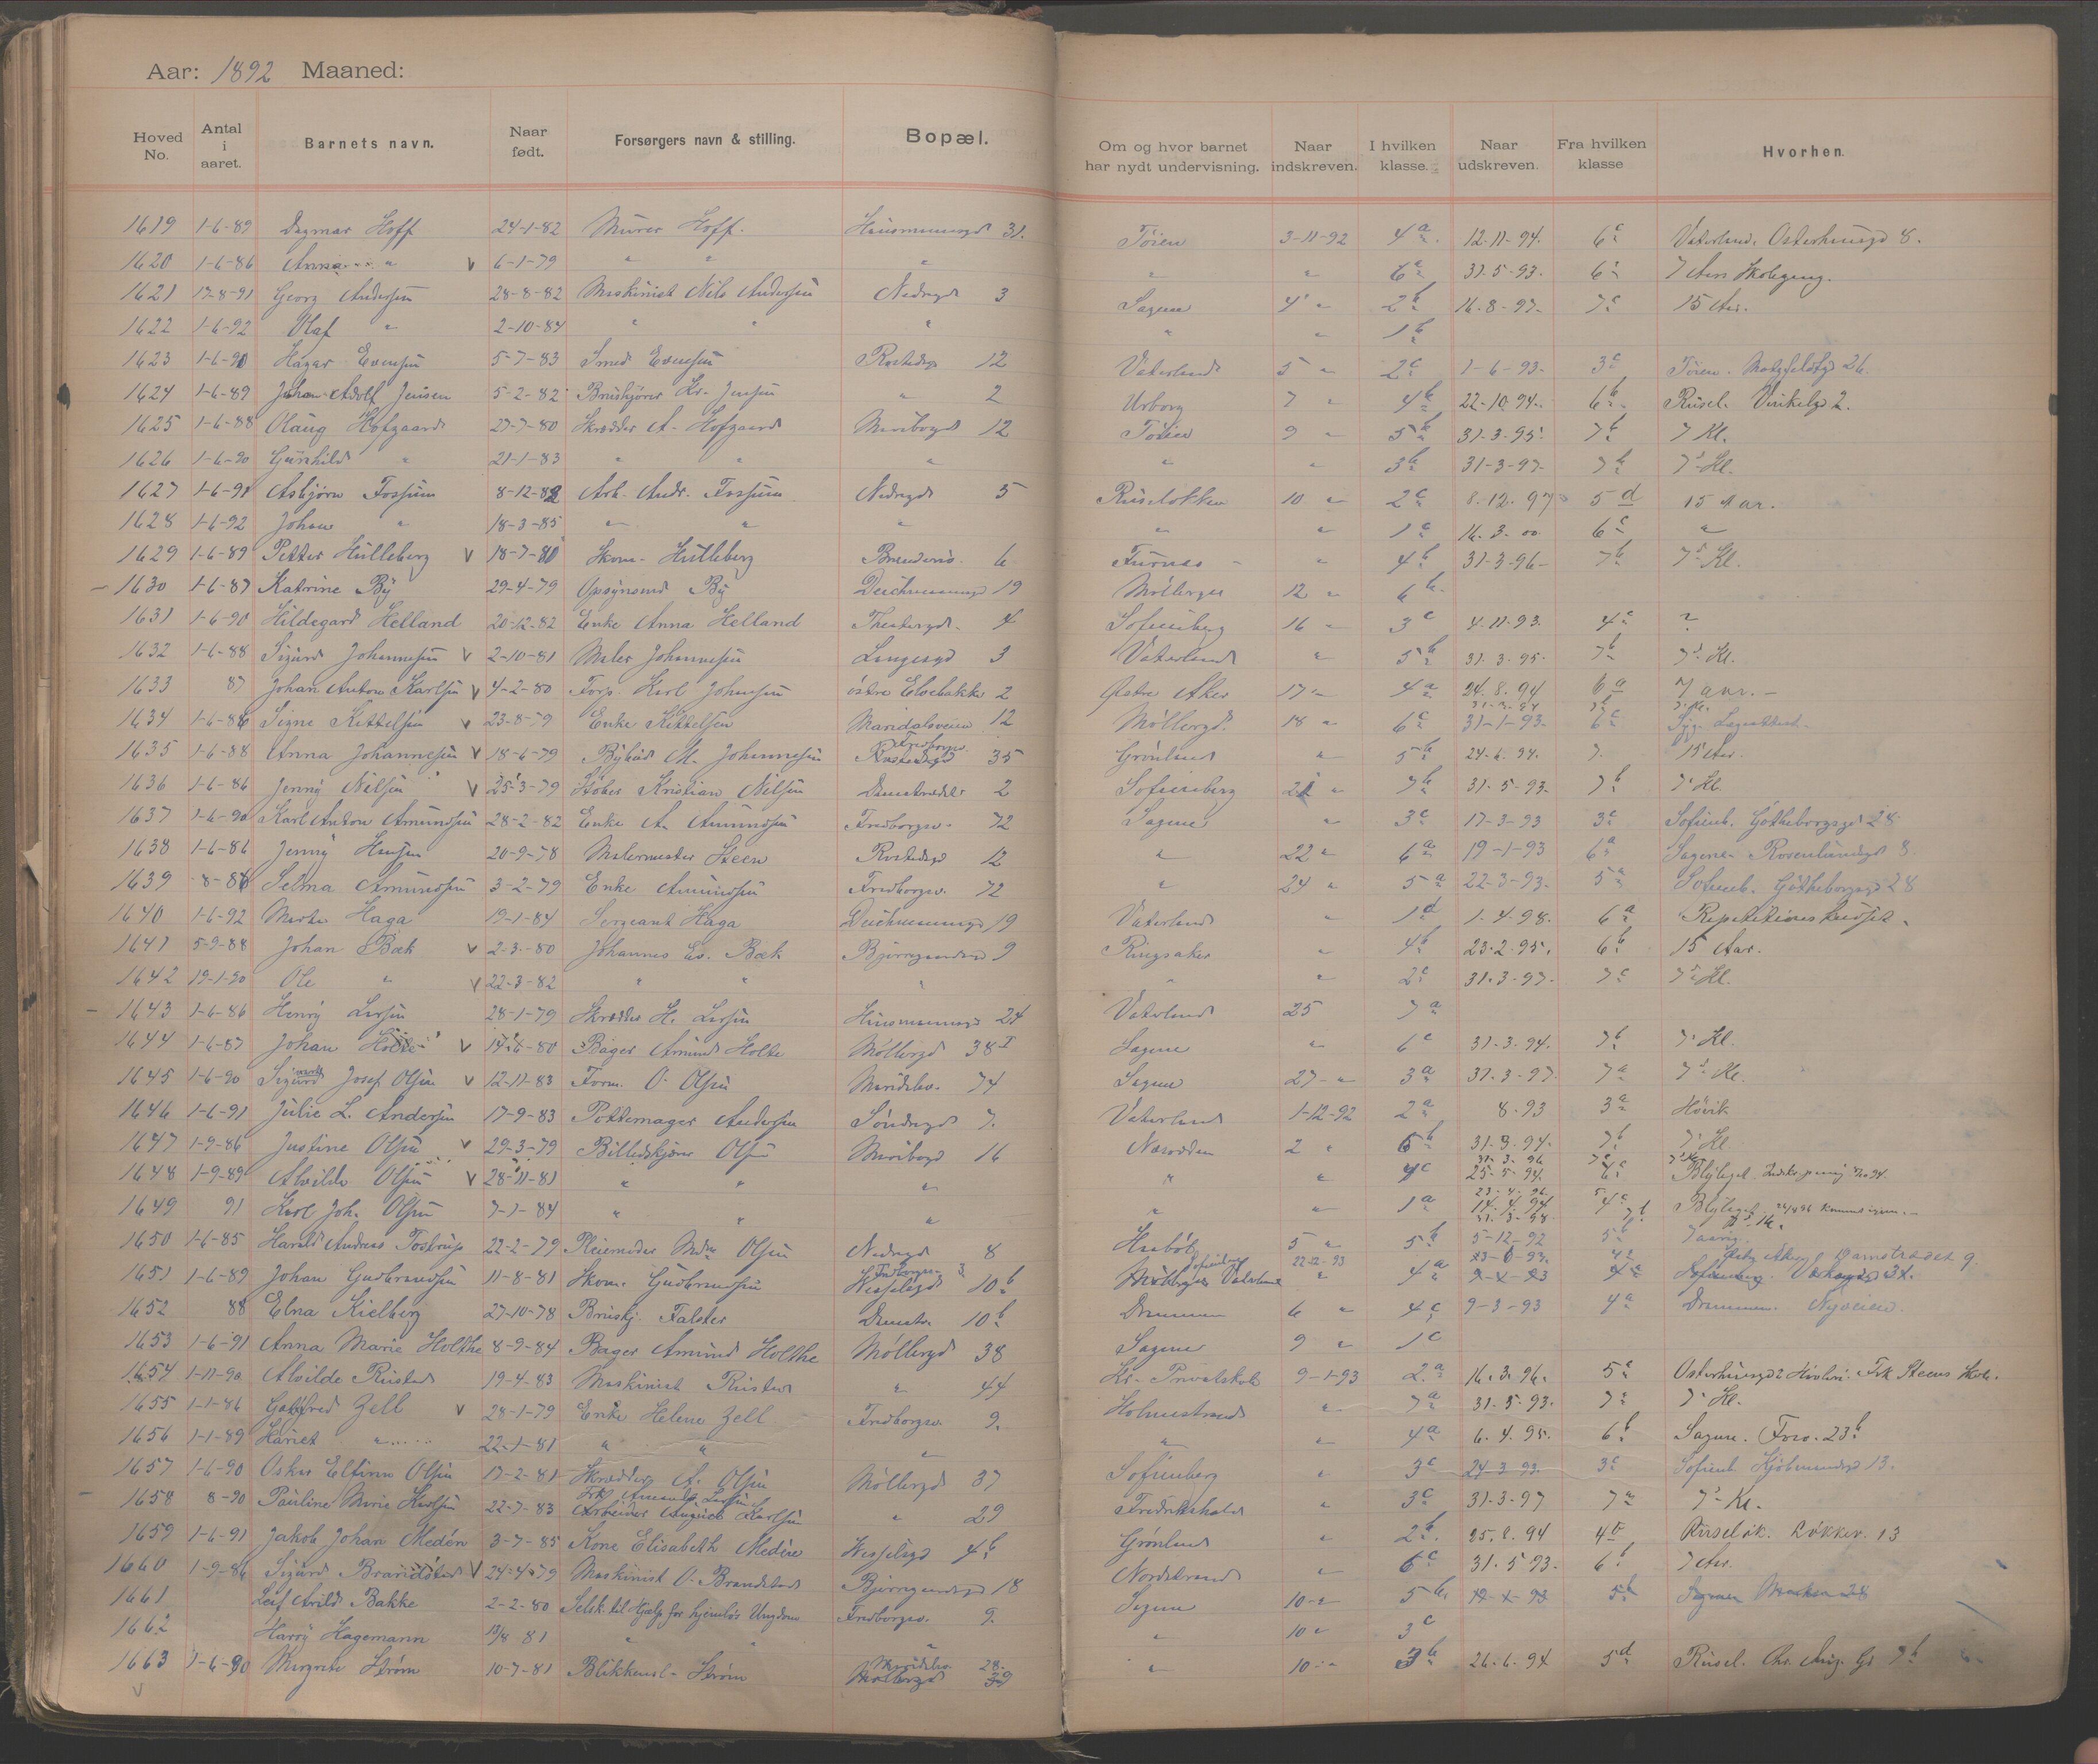 Aar: 1892 Maaned:
Hoved No. Antal i aaret. Barnets navn. Naar født. Forsørgers navn & stilling. Bopæl. Om og hvor barnet har nydt undervisning. Naar indskreven. I hvilken klasse. Naar udskreven. Fra hvilken klasse Hvorhen.
1619 1-6-89 Dagmar Hoff 24-1-82 Murer Hoff. Hausmannsgd 31. Tøien 3-11-92 4a 12-11-94. 6c Vaterland. Osterhausgd 8.
1620 1-6-86 Anna " v 6-1-79 " " " " " 6a 31-5-93. 6c 7 Aars Skolegang.
1621 17-8-91 Georg Andersen 28-8-82 Maskinist Nils Andersen Nedregd 3 Sagene 4 " 2b 16-8-97. 7c 15 Aar.
1622 1-6-92 Olaf " 2-10-84 " " " " " 1b
1623 1-6-90 Hagar Evensen 5-7-83 Smed Evensen Rostedsgd 12 Vaterland 5 " 2c 1-6-93. 3c Tøien. Motzfeldtsgd 26.
1624 1-6-89 Johan Adolf Jensen 5-2-82 Bruskjører Kr. Jensen " 2 Uranborg 7 " 4b 22-10-94. 6b Rusel. Vinkelgd 2.
1625 1-6-88 Olaug Hofgaard 27-7-80 Skrædder A. Hofgaard Maribogd 12 Tøien 9 " 5b 31-3-95. 7b 7 Kl.
1626 1-6-90 Gunhild " 21-1-83 " " " " " 3b 31-3-97. 7b 7' Kl.
1627 1-6-91 Asbjørn Fossum 8-12-82 Arb. Andr. Fossum Nedregd 5 Ruseløkken 10 " 2c 8.12.97 5d 15 Aar.
1628 1-6-92 Johan " 18-3-85 " " " " " 1c 16.3.00 6c "
1629 1-6-89 Petter Hulleberg v 18-7-80 Skom. Hulleberg Brenneriv. 6 Furnes " 4b 31-3-96 7b 7' Kl.
1630 1-6-87 Katrine By 29-4-79 Opsynsmd By Deichmannsgd 19 Møllergd 12 " 6b
1631 1-6-90 Hildegard Helland 20-12-82 Enke Anna Helland Theatergd 4 Sofienberg 16 " 3c 4-11-93. 4c ?
1632 1-6-88 Sigurd Johannesen v 2-10-81 Maler Johannesen Langesgd 3 Vaterland " 5b 31.3.95. 7b 7' Kl.
1633 87 Johan Anton Karlsen v 4-2-80 Torp. Karl Johnsen østre Elvebakke 2 Østre Aker 17 " 4a 24.8.94 6a 7 aar.
1634 1-6-86 Signe Kittelsen v 23-8-79 Enke Kittelsen Maridalsveien 12 Møllergd. 18 " 6c 31-1-93. 6c
1635 1-6-88 Anna Johannesen v 18-6-79 Bybud M. Johannesen Rostedsgd 35 Grønland " 5b 24-6.94. 7. 15 Aar.
1636 1-6-86 Jenny Nilsen v 25-3-79 Støber Kristian Nilsen Damstrædet 2 Sofienberg 21 " 7b 31.5-93. 7b 7' Kl.
1637 1-6-90 Karl Anton Amundsen 28-2-82 Enke A. Amundsen Fredborgsv. 72 Sagene " 3c 17-3-93 3c Sofienb. Gøtheborgsgd 28
1638 1-6-86 Jenny Hansen 20-9-78 Malermester Steen Rostedsgd 12 " 22 " 6a 19-1-93 6a Sagene. Rosenlundsgd 8
1639 8-86 Selma Amundsen 3-2-79 Enke Amundsen Fredborgsv. 72 " 24 " 5a 22-3-93. 5a Sofienb. Gøtheborgsgd 28
1640 1-6-92 Marta Haga 19-1-84 Sergeant Haga Deichmannsgd 19 Vaterland " 1d 1.4.98. 6a
1641 5-9-88 Johan Bæk v 2-3-80 Johannes Bæk Bjerregaardsgd 9 Ringsaker " 4b 23.2.95. 6b 15 Aar.
1642 19-1-90 Ole " v 22-3-82 " " " " " 2c 31.3-97. 7c 7' Kl.
1643 1-6-86 Henry Larsen 28-1-79 Skrædder H. Larsen Hausmannsgd 24 Vaterland 25 7a
1644 1-6-87 Johan Holte v 14-6-80 Bager Amund Holte Møllergd 38 I Sagene " 6c 31-3-94. 7b 7' Kl.
1645 1-6-90 Sigurd Josef Olsen v 12-11-83 Form. O. Olsen Maridalsv. 74 Sagene 27 " 3a 31.3-97. 7a 7' Kl.
1646 1-6-91 Julie L. Andersen 17-9-83 Pottemager Andersen Søndregd 7. Vaterland 1-12-92 2a 8-93 3a Høvik
1647 1-9-86 Justine Olsen v 29-3-79 Billedskjærer Olsen Maribogd 16 Næsodden 2 " 6b 31.3.94. 7b 7' Kl
1648 1-9-89 Alvilde Olsen v 28-11-81 " " " " " 4c 25-5-94. 6c
1649 91 Karl Joh. Olsen 7-1-84 " " " " " 1a 14.4.94 4c
1650 1-6-85 Harald Andreas Tostrup 22-2-79 Pleiemoder Mdm Olsen Nedregd 8 5 " 5b 5-12-92 5b
1651 1-6-89 Johan Gudbrandsen 11-8-81 Skom. Gudbrandsen Wesselsgd 10b Vaterland " 4a
1652 88 Elna Kielberg 27-10-78 Bruskj. Falster Damstr. 10b Drammen 6 " 4c 9-3-93 4a Drammen. Nyveien.
1653 1-6-91 Anna Marie Holthe 8-9-84 Bager Amund Holthe Møllergd 38 Sagene 9 " 1c
1654 1-11-90 Alvilde Rustad 19-4-83 Maskinist Rustad " 44 Kr. Privatskole 9-1-93 2a 16.3.96. 5c Osterhausgd Frk Steens Skole.
1655 1-1-86 Gotfred Zell v 28-1-79 Enke Helene Zell Fredborgsv. 9. Holmestrand " 7a 31.5.93. 7c 7' Kl.
1656 1-1-89 Hariet " 22-1-81 " " " " " 4a 6.4.95. 6b Sagene. 23b
1657 1-6-90 Oskar Olsen 17-2-81 Skrædder A. Olsen Møllergd 37 Sofienberg " 3c 24-3-93. 3c Sofienb. Kjøbmandsgd 13.
1658 8-90 Pauline Marie Karlsen 22-7-83 Arbeider August Karlsen " 29 Fredrikshald " 3c 31-3-97 7a 7' Kl.
1659 1-6-91 Jakob Johan Medén 3-7-85 Kone Elisabeth Medén Wesselsgd 4b Grønland " 2b 25.8.94 4b Ruseløk. Løkkev. 13
1660 1-9-86 Sigurd Brandstad v 24-4-79 Maskinist O. Brandstad Bjerregaardsgd 18 Nordstrand " 6c 31.5-93. 6b 7 Aar.
1661 Leif Arild Bakke 2-2-80 Selsk. til Hjælp for hjemløs Ungdom Fredborgsv. 9. Sagene 10 " 5b 5b Sagene 28
1662 Harry Hagemann 13/8 81 " " " " 10 " 3c
1663 1-6-90 Margrete Strøm 10-7-81 Blikkensl. Strøm Maridalsv. 28. Møllergd 39 " 10 " 3b 26.6.94 5d Rusel.